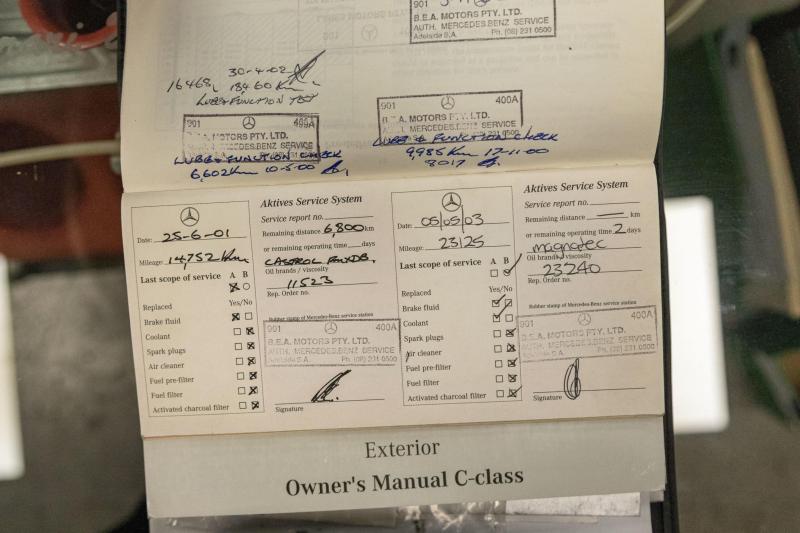 901
B.E.A. MOTORS PTY. LTD.
AUTH. MERCEDES.BENZ SERVICE
Adelaide S.A. Ph. (08) 231 0500
30-4-02
18460 Km
LUBE FUNCTION TEST
901 400A
B.E.A. MOTORS PTY. LTD.
MERCEDES.BENZ SERVICE
LUBE & FUNCTION CHECK
6,602 Km 10-5-00
901 400A
B.E.A. MOTORS PTY. LTD.
AUTH. MERCEDES.BENZ SERVICE
LUBE & FUNCTION CHECK
9,985 Km 17-11-00
8017
Aktives Service System
Date: 25-6-01
Mileage: 14,752 Km
Last scope of service A B
Replaced Yes/No
Brake fluid
Coolant
Spark plugs
Air cleaner
Fuel pre-filter
Fuel filter
Activated charcoal filter
Service report no.
Remaining distance 6,800 km
or remaining operating time days
CASTROL
Oil brands / viscosity
11523
Rep. Order no.
Rubber stamp of Mercedes-Benz service station
901 400A
B.E.A. MOTORS PTY. LTD.
AUTH. MERCEDES.BENZ SERVICE
Adelaide S.A. Ph. (08) 231 0500
Signature
Aktives Service System
Date: 05/05/03
Mileage: 23125
Last scope of service A B
Replaced Yes/No
Brake fluid
Coolant
Spark plugs
Air cleaner
Fuel pre-filter
Fuel filter
Activated charcoal filter
Service report no.
Remaining distance km
or remaining operating time 2 days
magnatec
Oil brands / viscosity
23240
Rep. Order no.
Rubber stamp of Mercedes-Benz service station
901 400A
B.E.A. MOTORS PTY. LTD.
AUTH. MERCEDES.BENZ SERVICE
Adelaide S.A. Ph. (08) 231 0500
Signature
Exterior
Owner's Manual C-class